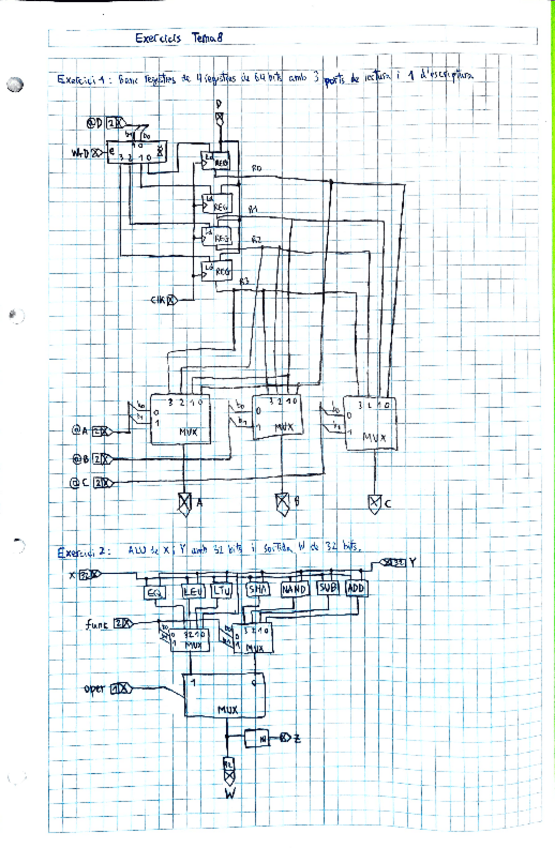 Exercicis Tema 8
Exercici 1: Banc registres de 4 registres de 64 bits amb 3 ports de lectura i 1 d'escriptura.
D
@D 2 X
b1 b0
1 0
WrD X
e
3 2 1 0
Ld REG
R0
Ld REG
R1
Ld REG
R2
Ld REG
R3
Clk X
3 2 1 0
b0 0
b1 1
MUX
3 2 1 0
b0 0
b1 1
MUX
3 2 1 0
b0 0
b1 1
MUX
@A 2 X
@B 2 X
@C 2 X
A
B
C
Exercici 2: ALU de X i Y amb 32 bits i sortida W de 32 bits.
X 32 X
X 32 Y
EQ
LEU
LTU
SHA
NAND
SUB
ADD
func 2 X
0
1
3 2 1 0
MUX
0
1
3 2 1 0
MUX
oper 1 X
1
0
MUX
X Z
32
W